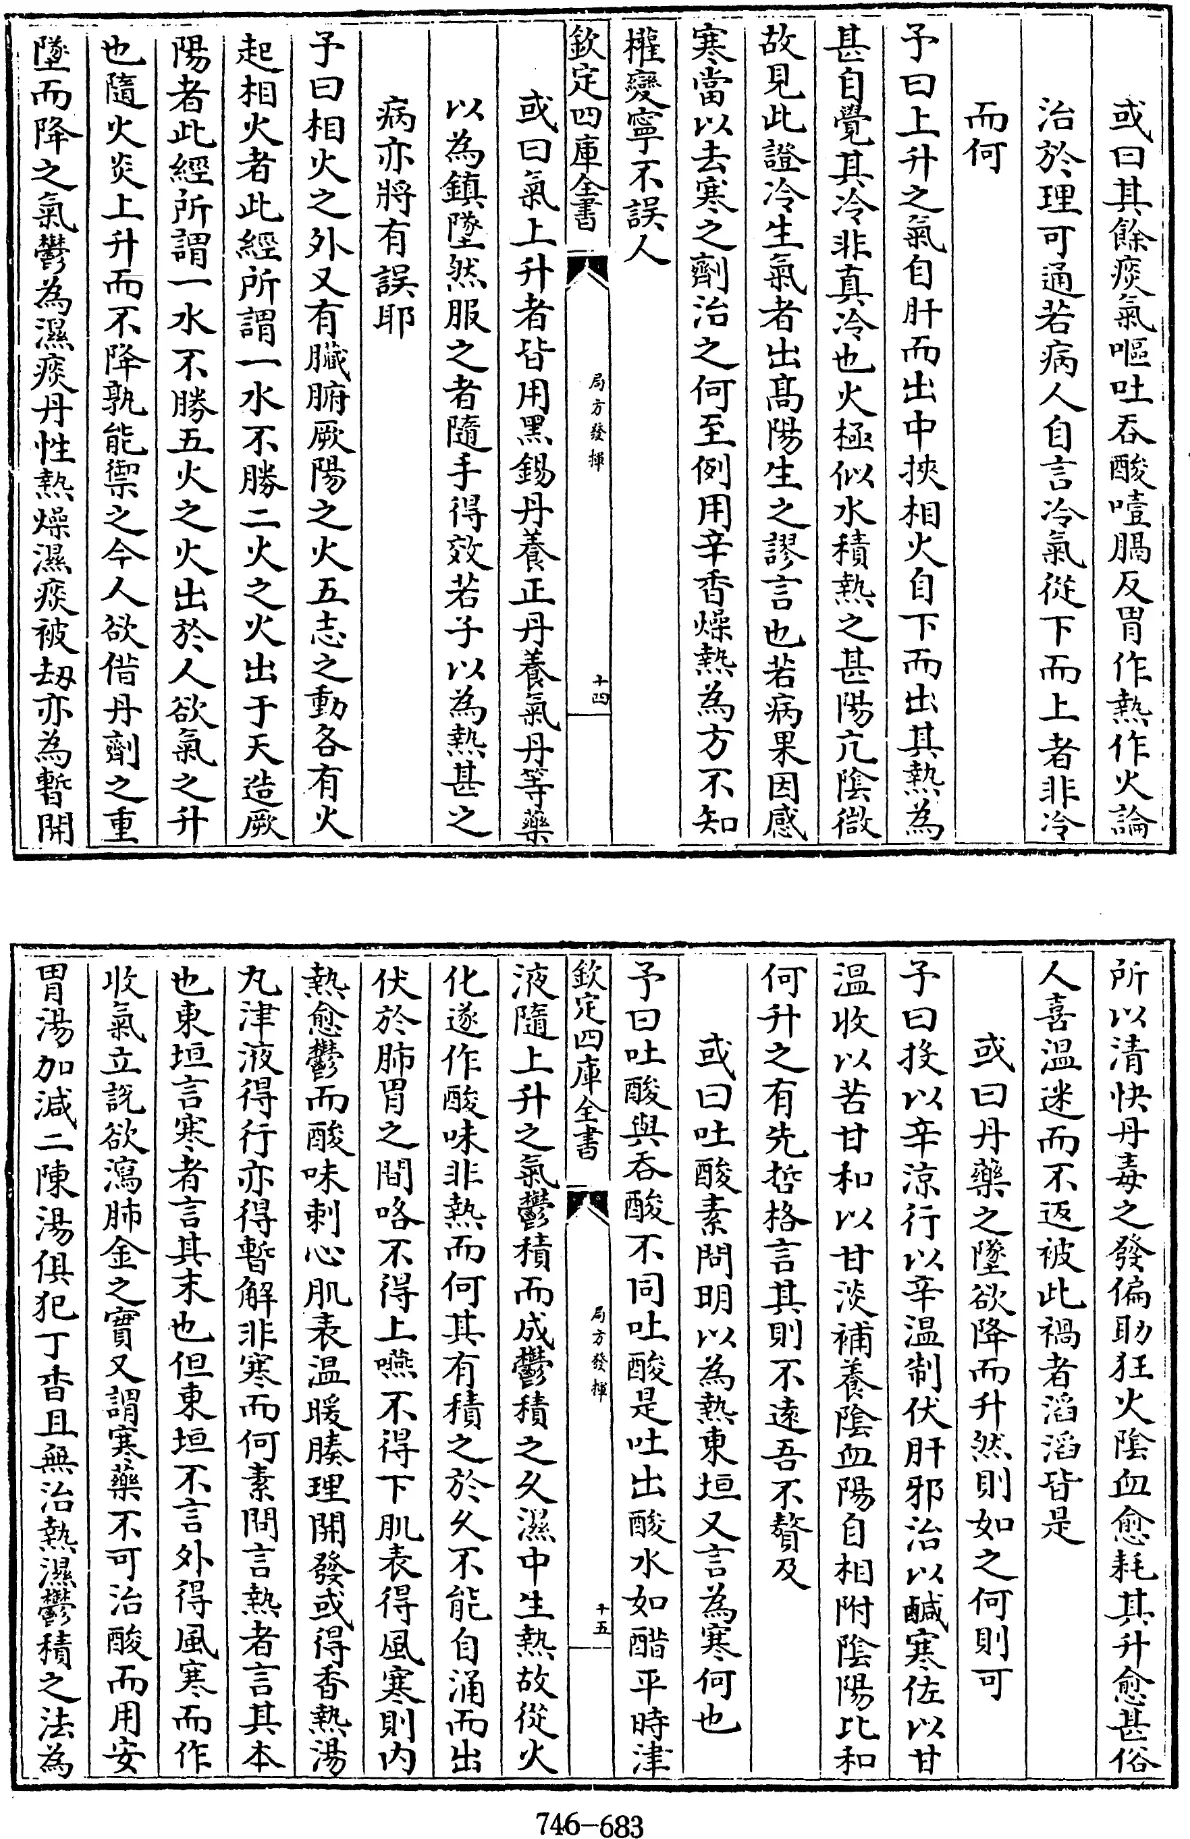 或曰其餘痰氣嘔吐吞酸噎膈反胃作熱作火論
治於理可通若病人自言冷氣從下而上者非冷
而何
予曰上升之氣自肝而出中挾相火自下而出其熱為
甚自覺其冷非真冷也火極似水積熱之甚陽亢陰微
故見此證冷生氣者出髙陽生之謬言也若病果因感
寒當以去寒之劑治之何至例用辛香燥熱為方不知
權變寧不誤人
欽定四庫全書
局方發揮
十四
或曰氣上升者皆用黑錫丹養正丹養氣丹等藥
以為鎮墜然服之者隨手得效若子以為熱甚之
病亦將有誤耶
予曰相火之外又有臟腑厥陽之火五志之動各有火
起相火者此經所謂一水不勝二火之火出于天造厥
陽者此經所謂一水不勝五火之火出於人欲氣之升
也隨火炎上升而不降孰能禦之今人欲借丹劑之重
墜而降之氣鬱為濕痰丹性熱燥濕痰被刼亦為暫開
所以清快丹毒之發偏助狂火陰血愈耗其升愈甚俗
人喜溫迷而不返被此禍者滔滔皆是
或曰丹藥之墜欲降而升然則如之何則可
予曰投以辛涼行以辛溫制伏肝邪治以鹹寒佐以甘
溫收以苦甘和以甘淡補養陰血陽自相附陰陽比和
何升之有先哲格言其則不遠吾不贅及
或曰吐酸素問明以為熱東垣又言為寒何也
予曰吐酸與吞酸不同吐酸是吐出酸水如醋平時津
欽定四庫全書
局方發揮
十五
液隨上升之氣鬱積而成鬱積之久濕中生熱故從火
化遂作酸味非熱而何其有積之於久不能自涌而出
伏於肺胃之間咯不得上嚥不得下肌表得風寒則内
熱愈鬱而酸味刺心肌表溫暖腠理開發或得香熱湯
丸津液得行亦得暫解非寒而何素問言熱者言其本
也東垣言寒者言其末也但東垣不言外得風寒而作
收氣立說欲瀉肺金之實又謂寒藥不可治酸而用安
胃湯加減二陳湯俱犯丁香且無治熱濕鬱積之法為
746-683